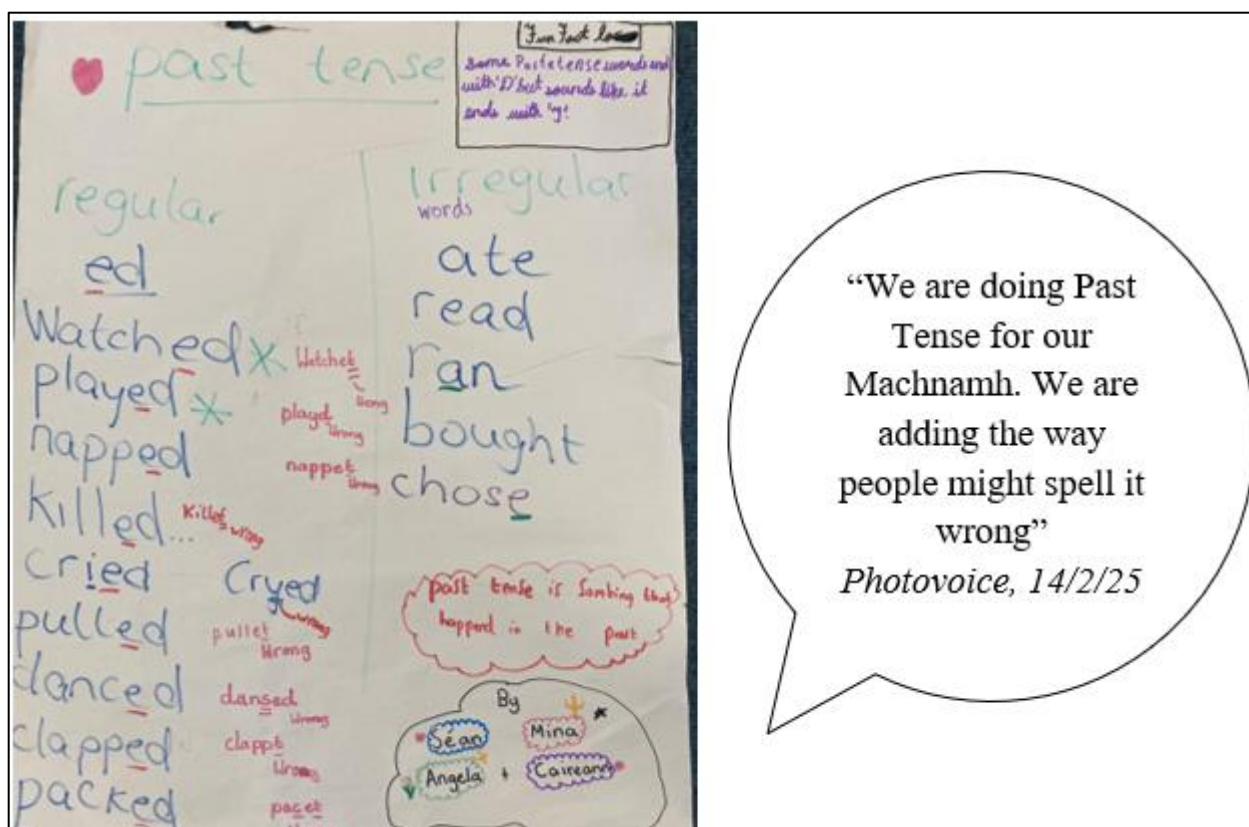 past tense
Fun Fact
Some Past tense words end
with 'D' but sounds like it
ends with
regular
irregular
words
ed
Watched
Watchet
Wrong
played
playd
Wrong
napped
nappet
Wrong
killed...
Killet
wrong
cried
Cryed
wrong
pulled
pullet
Wrong
danced
dansed
Wrong
clapped
clappt
Wrong
packed
pacet
ate
read
ran
bought
chose
past tense is Somthing that
happed in the past
By
Séan
Mina
Angela +
Caireann
“We are doing Past
Tense for our
Machnamh. We are
adding the way
people might spell it
wrong”
Photovoice, 14/2/25